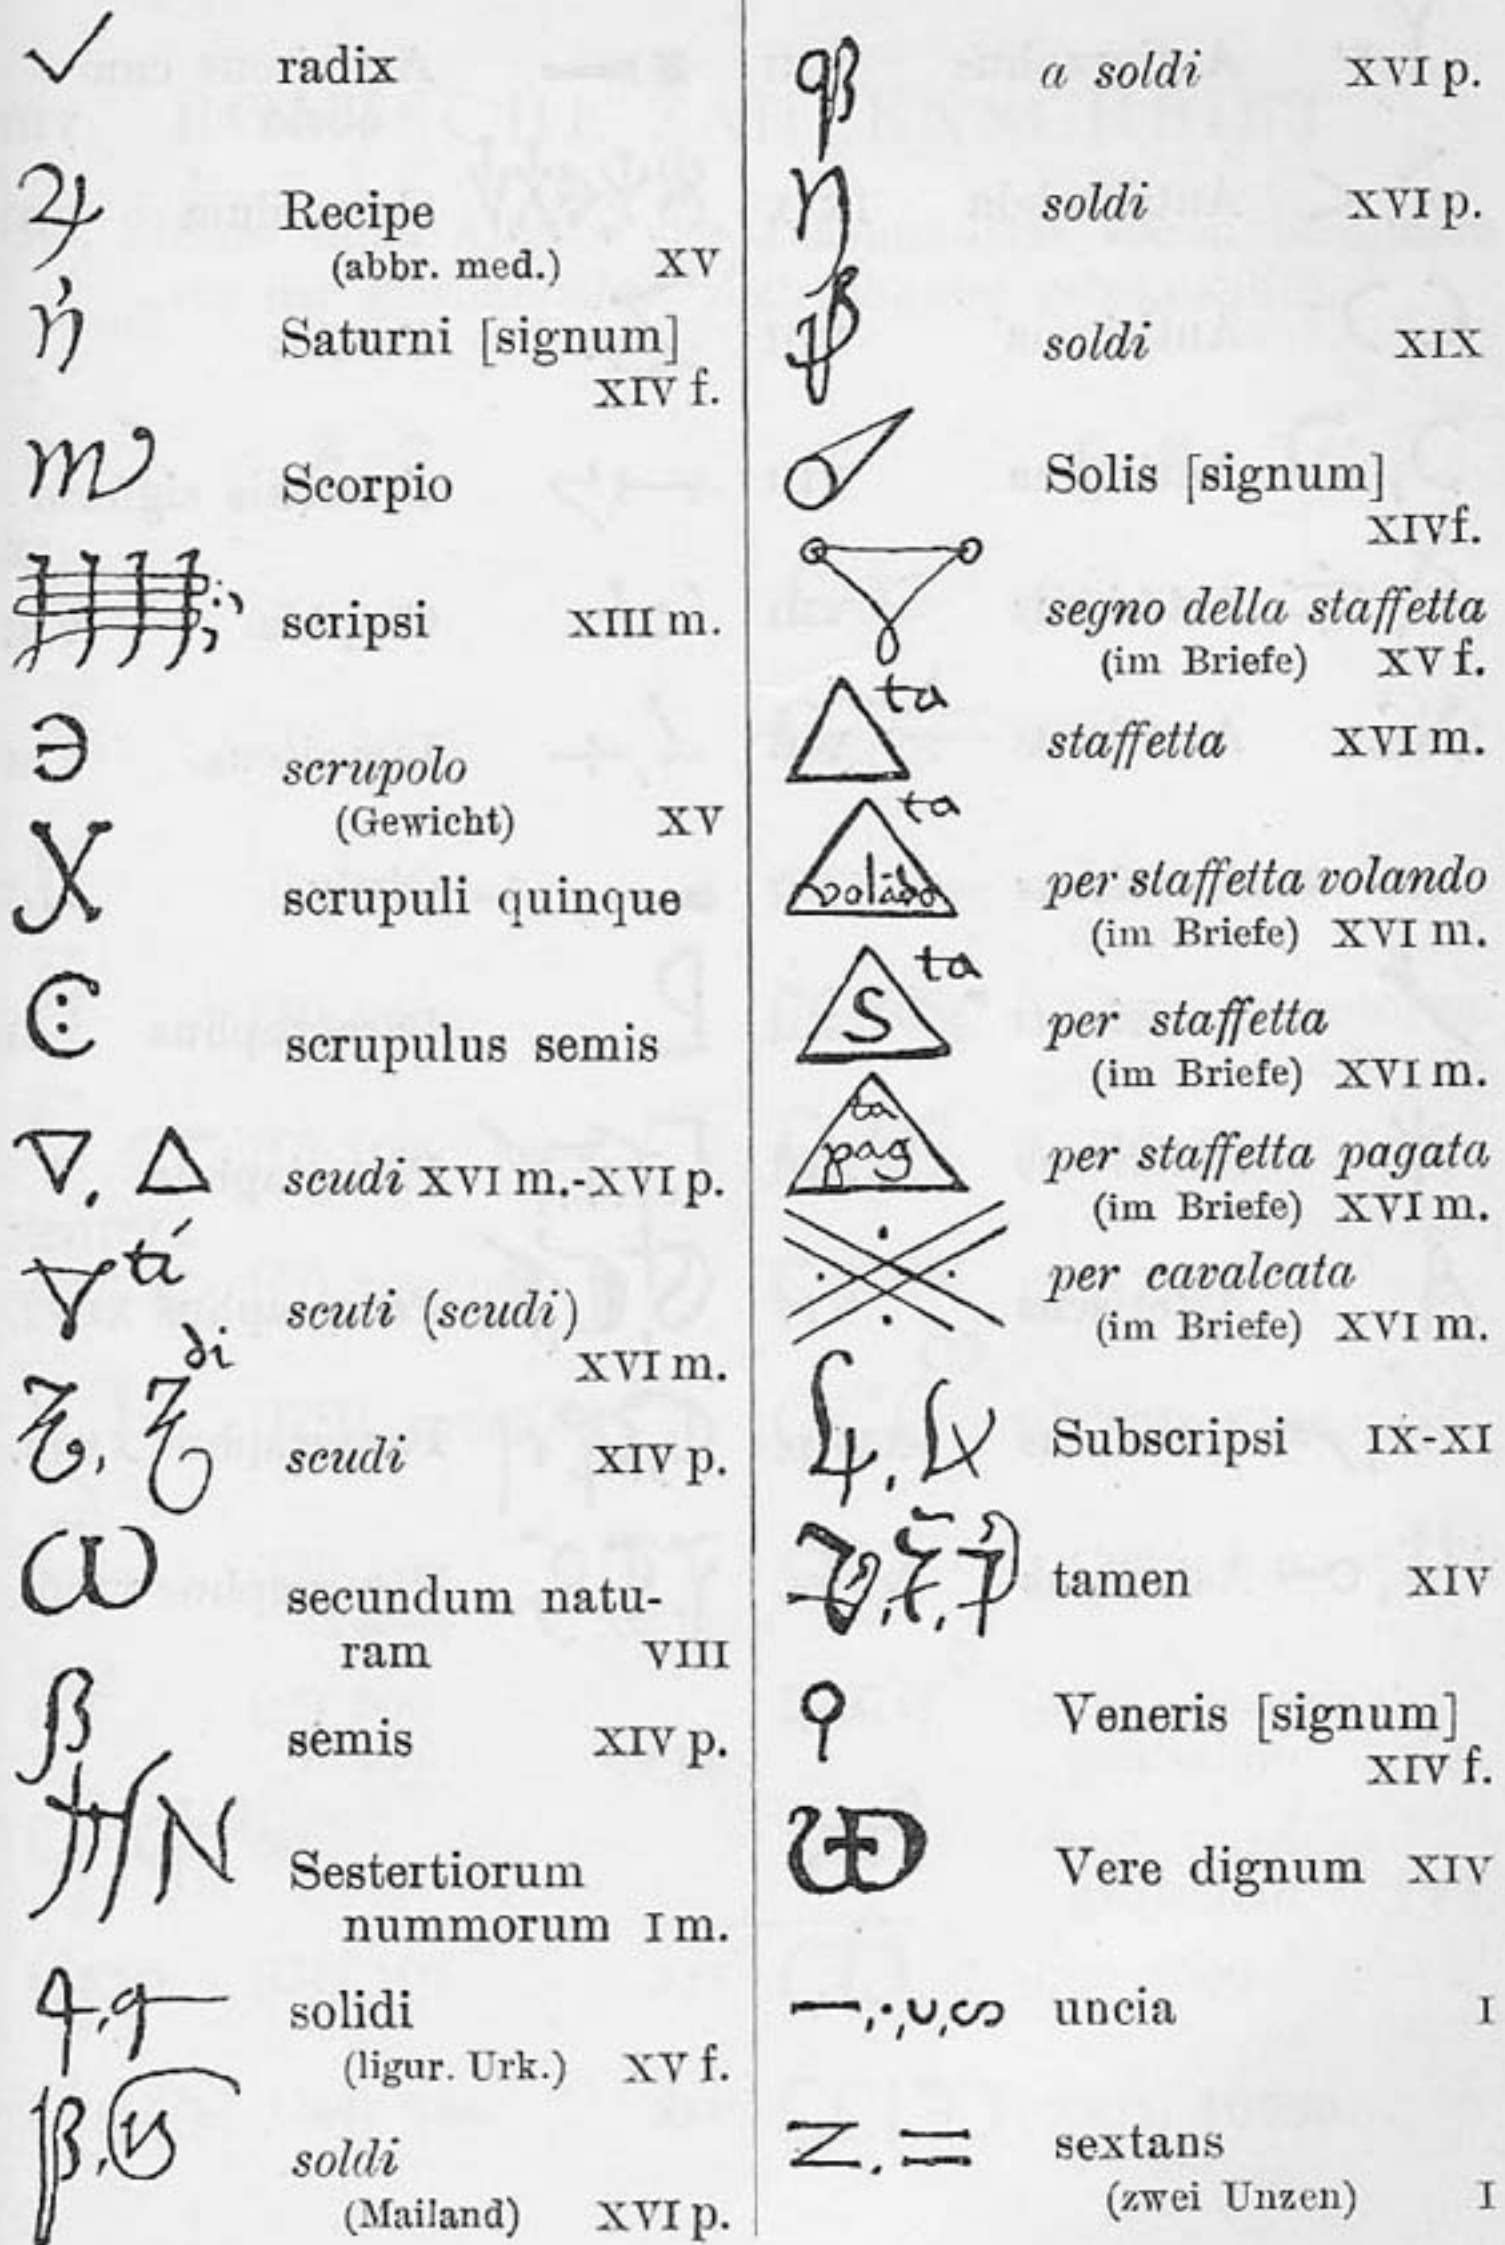 radix
Recipe
(abbr. med.) XV
Saturni [signum]
XIV f.
Scorpio
scripsi XIII m.
scrupolo
(Gewicht) XV
scrupuli quinque
scrupulus semis
scudi XVI m.-XVI p.
ti
scuti (scudi)
XVI m.
di
scudi XIV p.
secundum natu-
ram VIII
β
semis XIV p.
N
Sestertiorum
nummorum I m.
solidi
(ligur. Urk.) XV f.
β,
soldi
(Mailand) XVI p.
a soldi XVI p.
soldi XVI p.
soldi XIX
Solis [signum]
XIV f.
segno della staffetta
(im Briefe) XV f.
ta
staffetta XVI m.
ta
volādo
per staffetta volando
(im Briefe) XVI m.
ta
S
per staffetta
(im Briefe) XVI m.
ta
pag
per staffetta pagata
(im Briefe) XVI m.
per cavalcata
(im Briefe) XVI m.
Subscripsi IX-XI
tamen XIV
Veneris [signum]
XIV f.
Vere dignum XIV
uncia I
sextans
(zwei Unzen) I